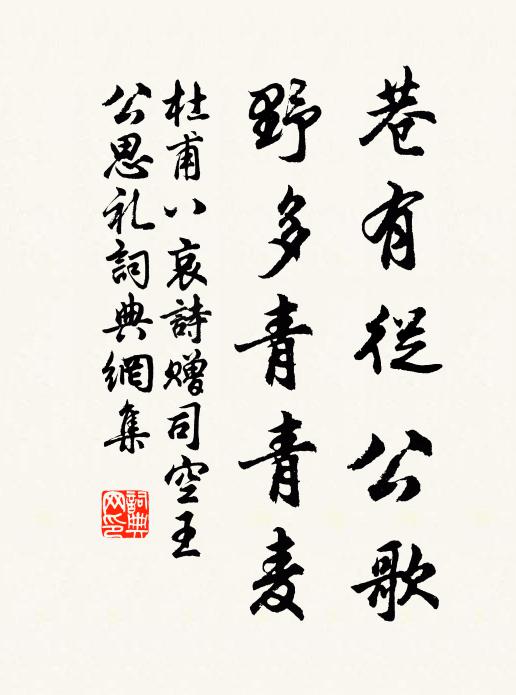 巷有從公歌
野多青青麦
杜甫八哀詩赠司空王
公思礼詞典網集
詞典网印